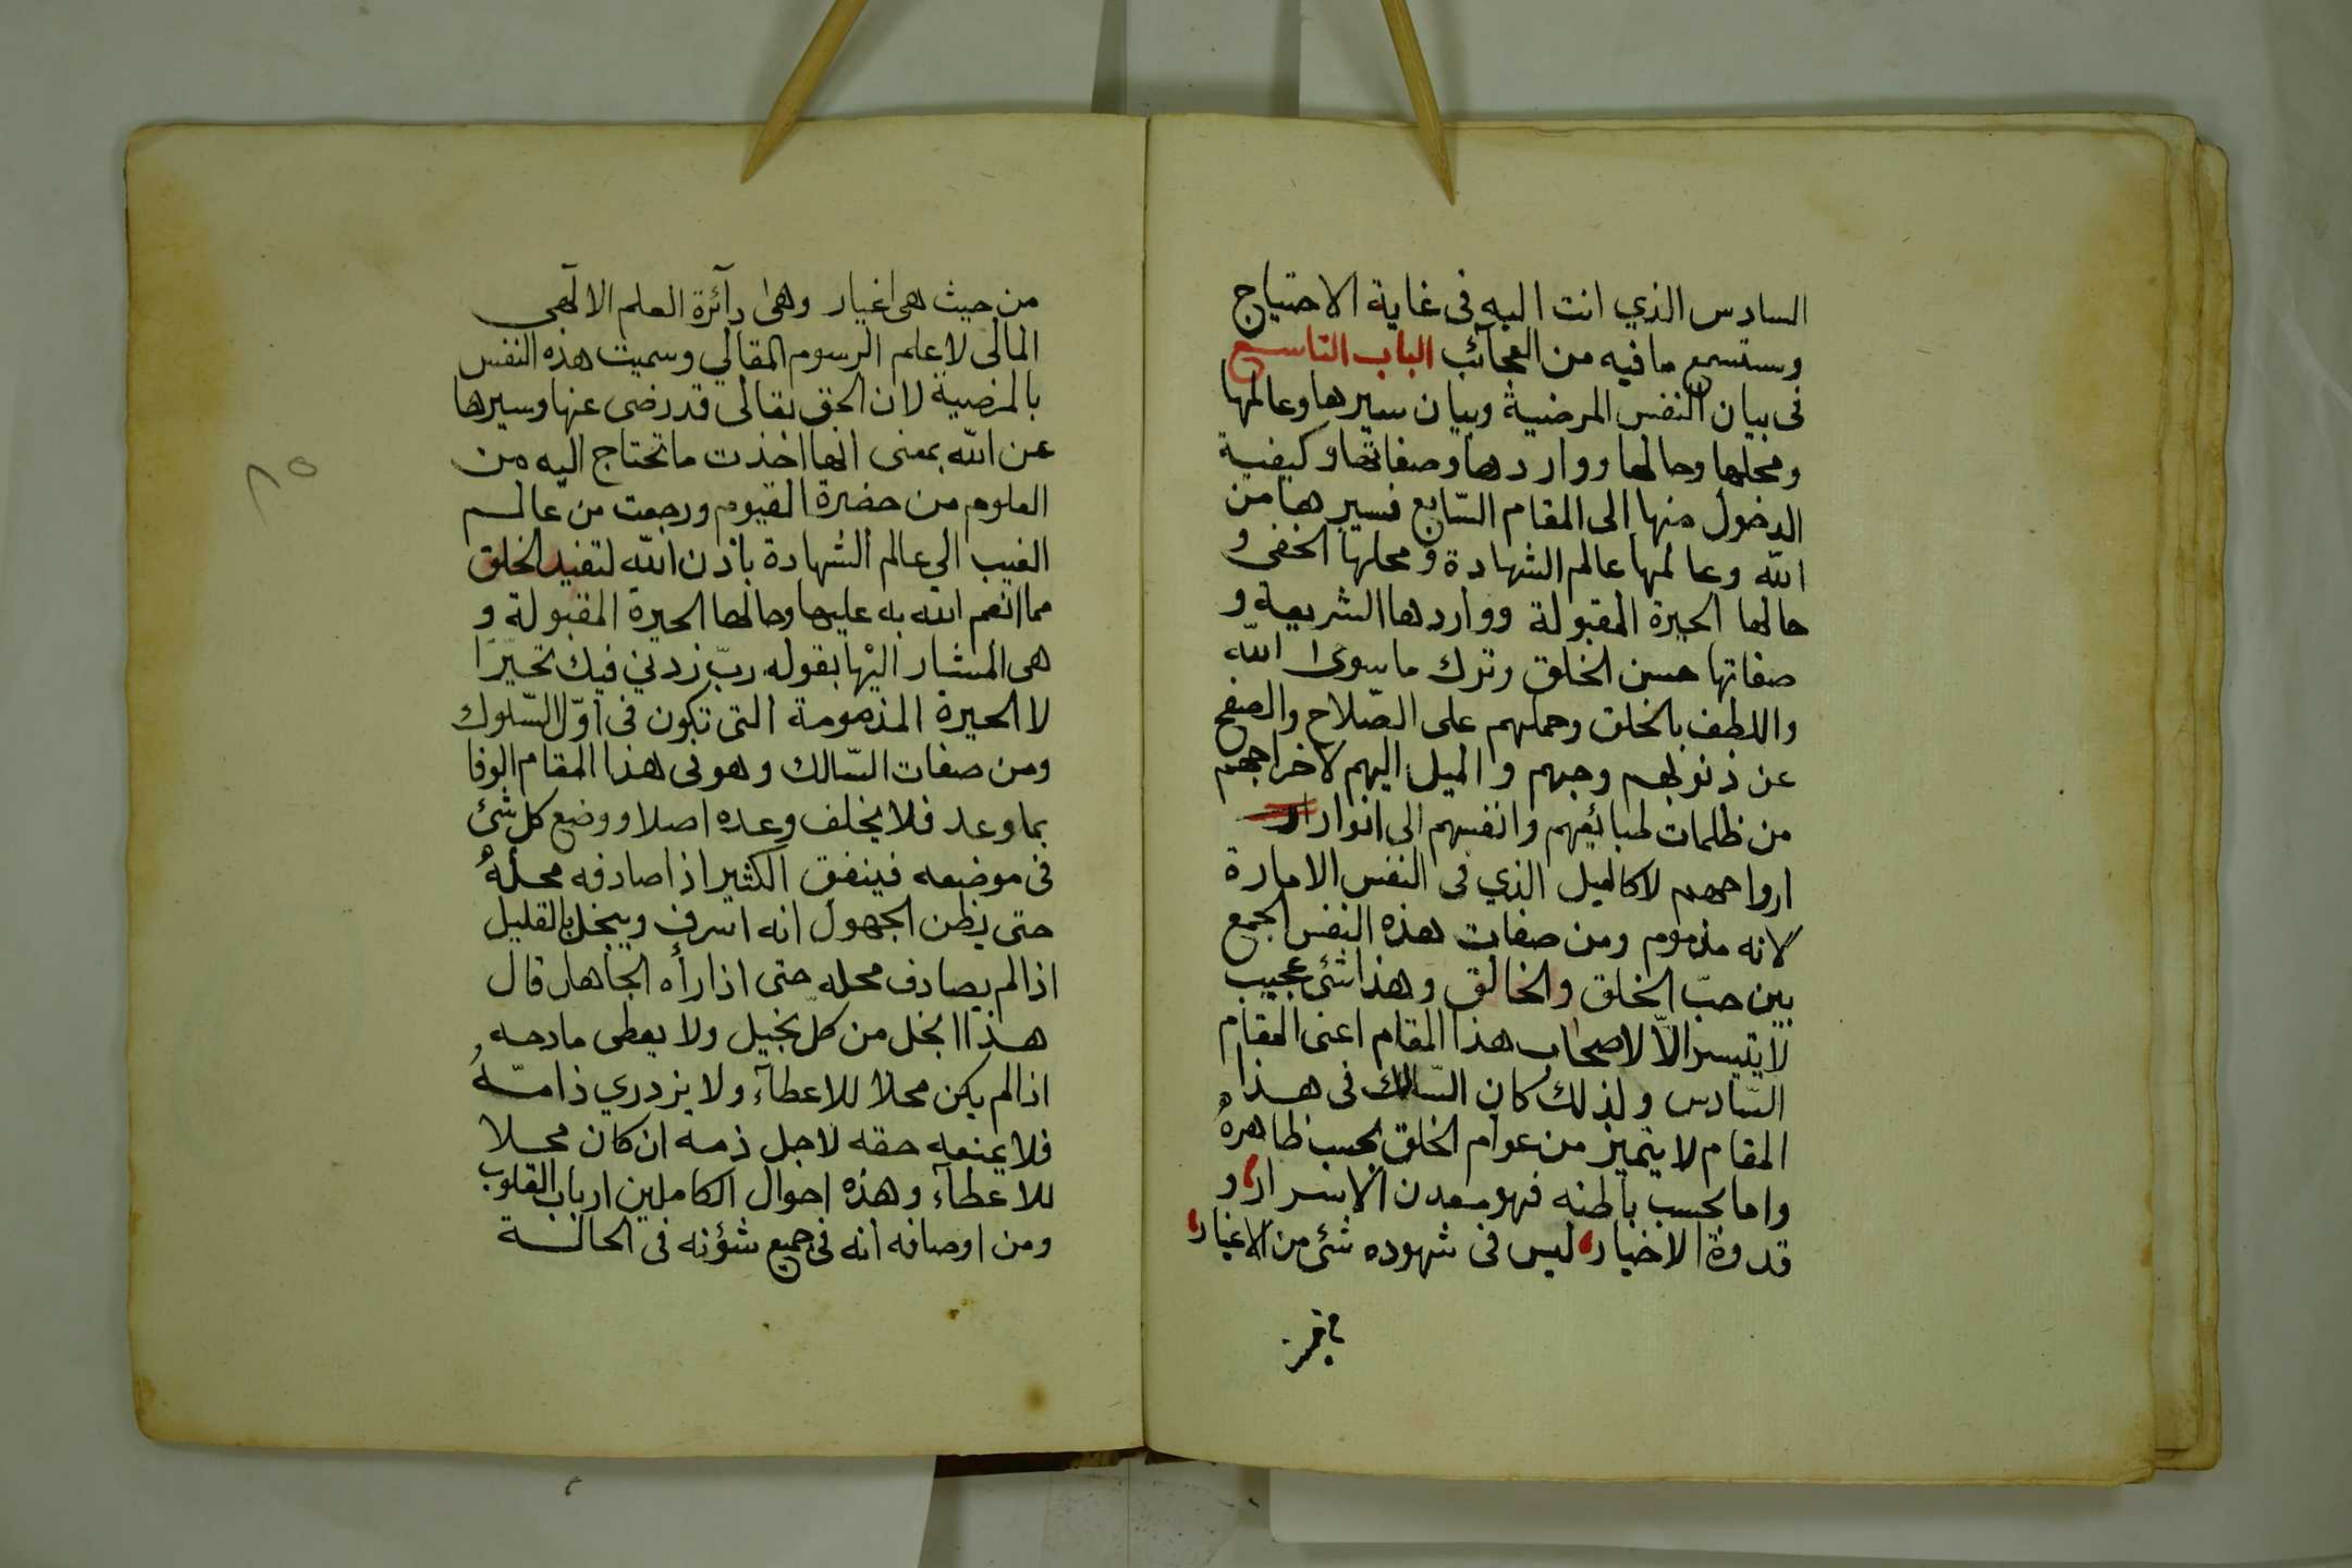 السادس الذي انت اليه فى غاية الاحتياج
وستسمع مافيه من العجآئب الباب التاسع
فى بيان النفس المرضية وبيان سيرها وعالمها
ومحلها وحالها وواردها وصفاتها وكيفية
الدخول منها الى المقام السّابع فسيرها من
الله وعالمها عالم الشهادة ومحلها الخفى و
حالها الحيرة المقبولة وواردها الشريعة و
صفاتها حسن الخلق وترك ماسوى الله
واللطف بالخلق وحملهم على الصّلاح والصفح
عن ذنوبهم وحبهم والميل اليهم لاخراجهم
من ظلمات طبائعهم وانفسهم الى انوار
ارواحهم لا كالميل الذي فى النفس الامارة
لانه مذموم ومن صفات هذه النفس الجمع
بين حبّ الخلق والخالق وهذا شئ عجيب
لا يتيسر الاّ لاصحاب هذا المقام اعنى المقام
السّادس ولذلك كان السّالك فى هذا
المقام لا يتميز من عوام الخلق بحسب ظاهرهُ
واما بحسب باطنه فهو معدن الاسرار و
قدوة الاخيار ليس فى شهوده شئ من الاغيار
من حيث
من حيث هى اغيار وهى دآئرة العلم الالهى
المالى لا علم الرسوم المقالي وسميت هذه النفس
بالمرضية لان الحق تعالى قد رضى عنها وسيرها
عن الله بمعنى انها اخذت ماتحتاج اليه من
العلوم من حضرة القيوم ورجعت من عالم
الغيب الي عالم الشهادة باذن الله لتفيد الخلق
مما انعم الله به عليها وحالها الحيرة المقبولة و
هى المشار اليها بقوله ربّ زدني فيك تحيّرًا
لا الحيرة المذمومة التى تكون فى اوّل السّلوك
ومن صفات السّالك وهو فى هذا المقام الوفا
بما وعد فلا يخلف وعده اصلا ووضع كل شئ
فى موضعه فينفق الكثير اذا صادفه محلهُ
حتى يظن الجهول انه اسرف ويبخل بالقليل
اذا لم يصادف محله حتى اذا رأه الجاهل قال
هذا ابخل من كلّ بخيل ولا يعطى مادحه
اذا لم يكن محلا للاعطآء ولا يزدري ذامّهُ
فلا يمنعه حقه لاجل ذمه ان كان محلا
للاعطآء وهذه احوال الكاملين ارباب القلوب
ومن اوصافه انه فى جميع شؤنه فى الحالة
٨٥